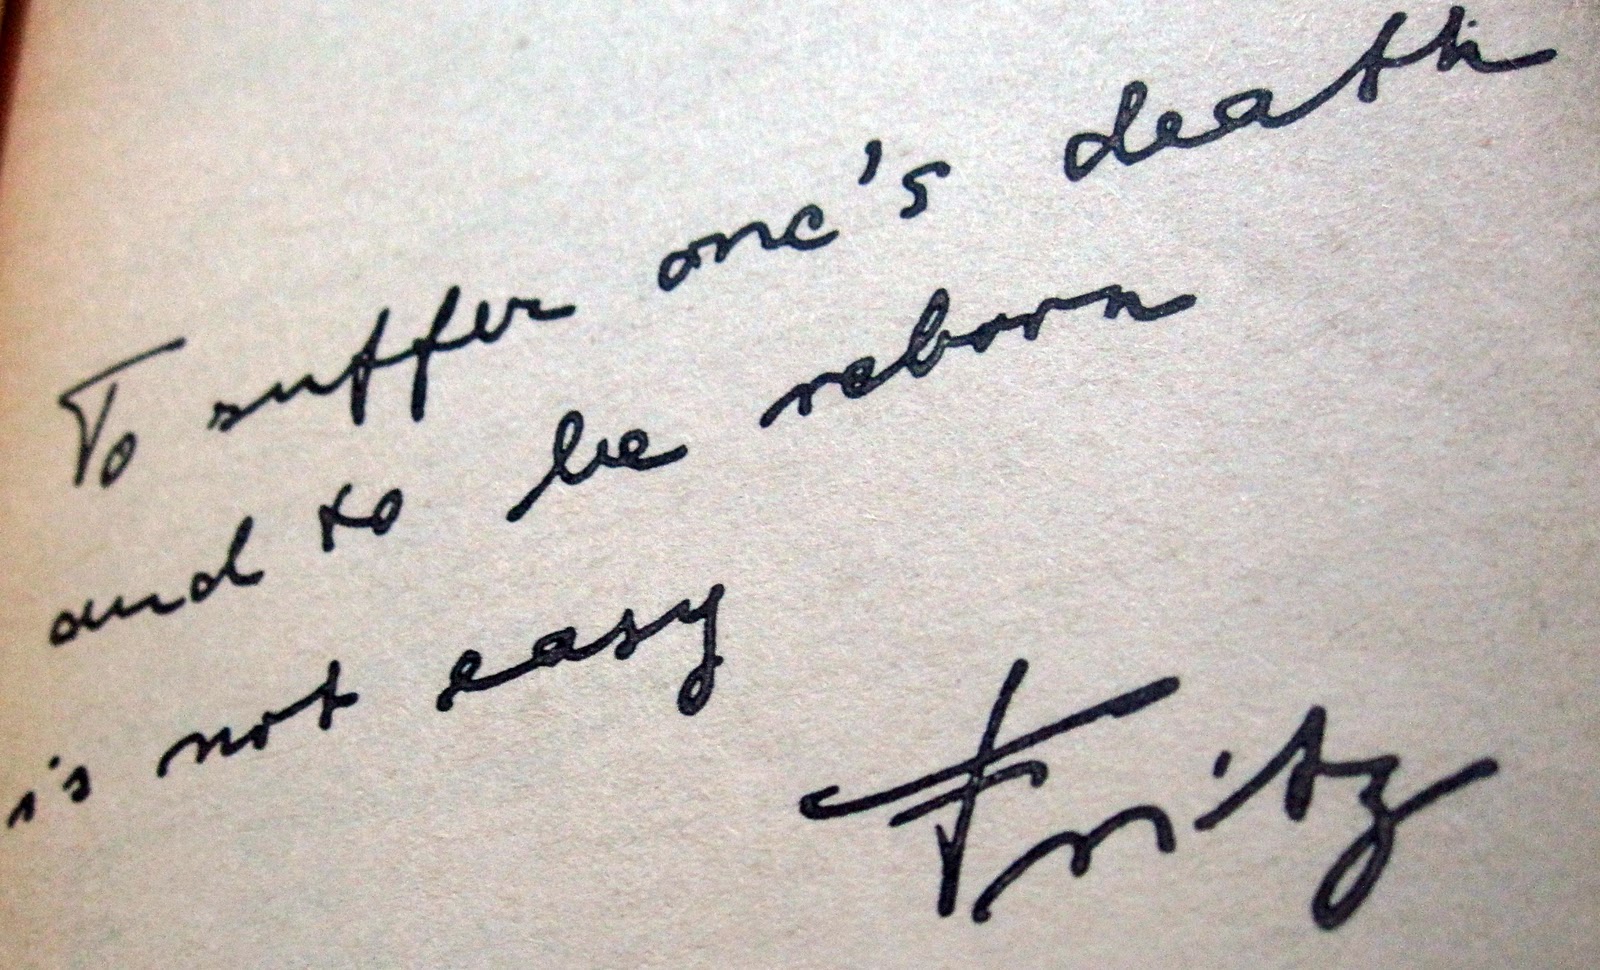 To suffer one's death
and to be reborn
is not easy
Fritz